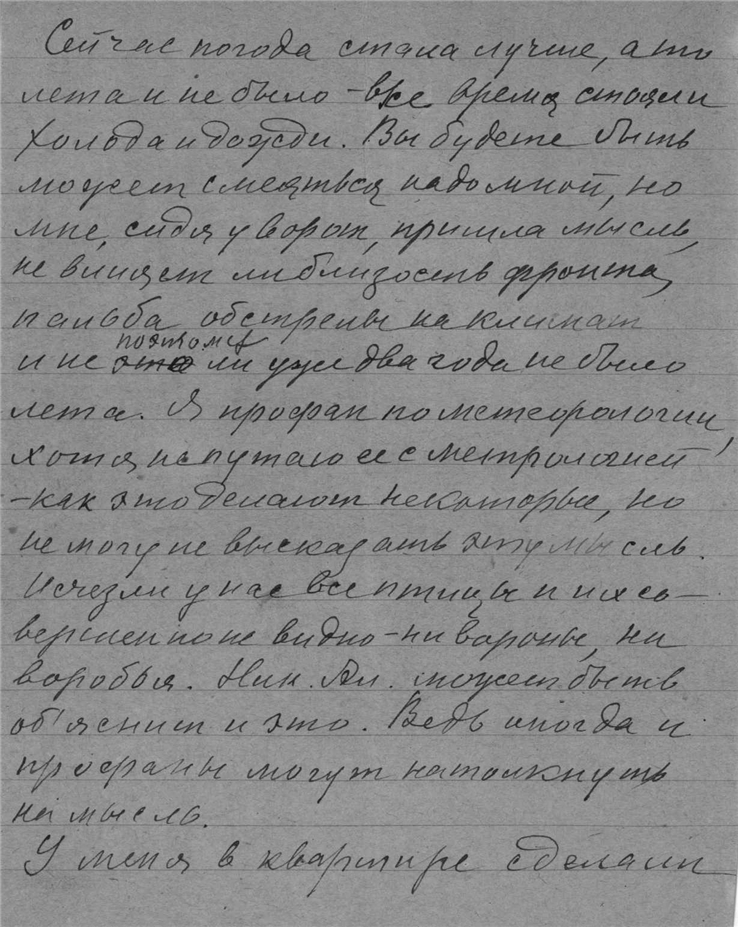 Сейчас погода стала лучше, а то
лета и не было – все время стояли
холода и дожди. Вы будете быть
может смеяться надо мной, но
мне, сидя у ворот, пришла мысль,
не влияет ли близость фронта,
пальба обстрелы на климат
и не поэтому ли уже два года не было
лета. Я профан по метеорологии,
хотя не путаю ее с метрологией
– как это делают некоторые, но
не могу не высказать эту мысль.
Исчезли у нас все птицы и их со–
вершенно не видно – ни вороны, ни
воробья. Ник. Ал. может быть
об'яснит и это. Ведь иногда и
профаны могут натолкнуть
на мысль.
У меня в квартире сделали